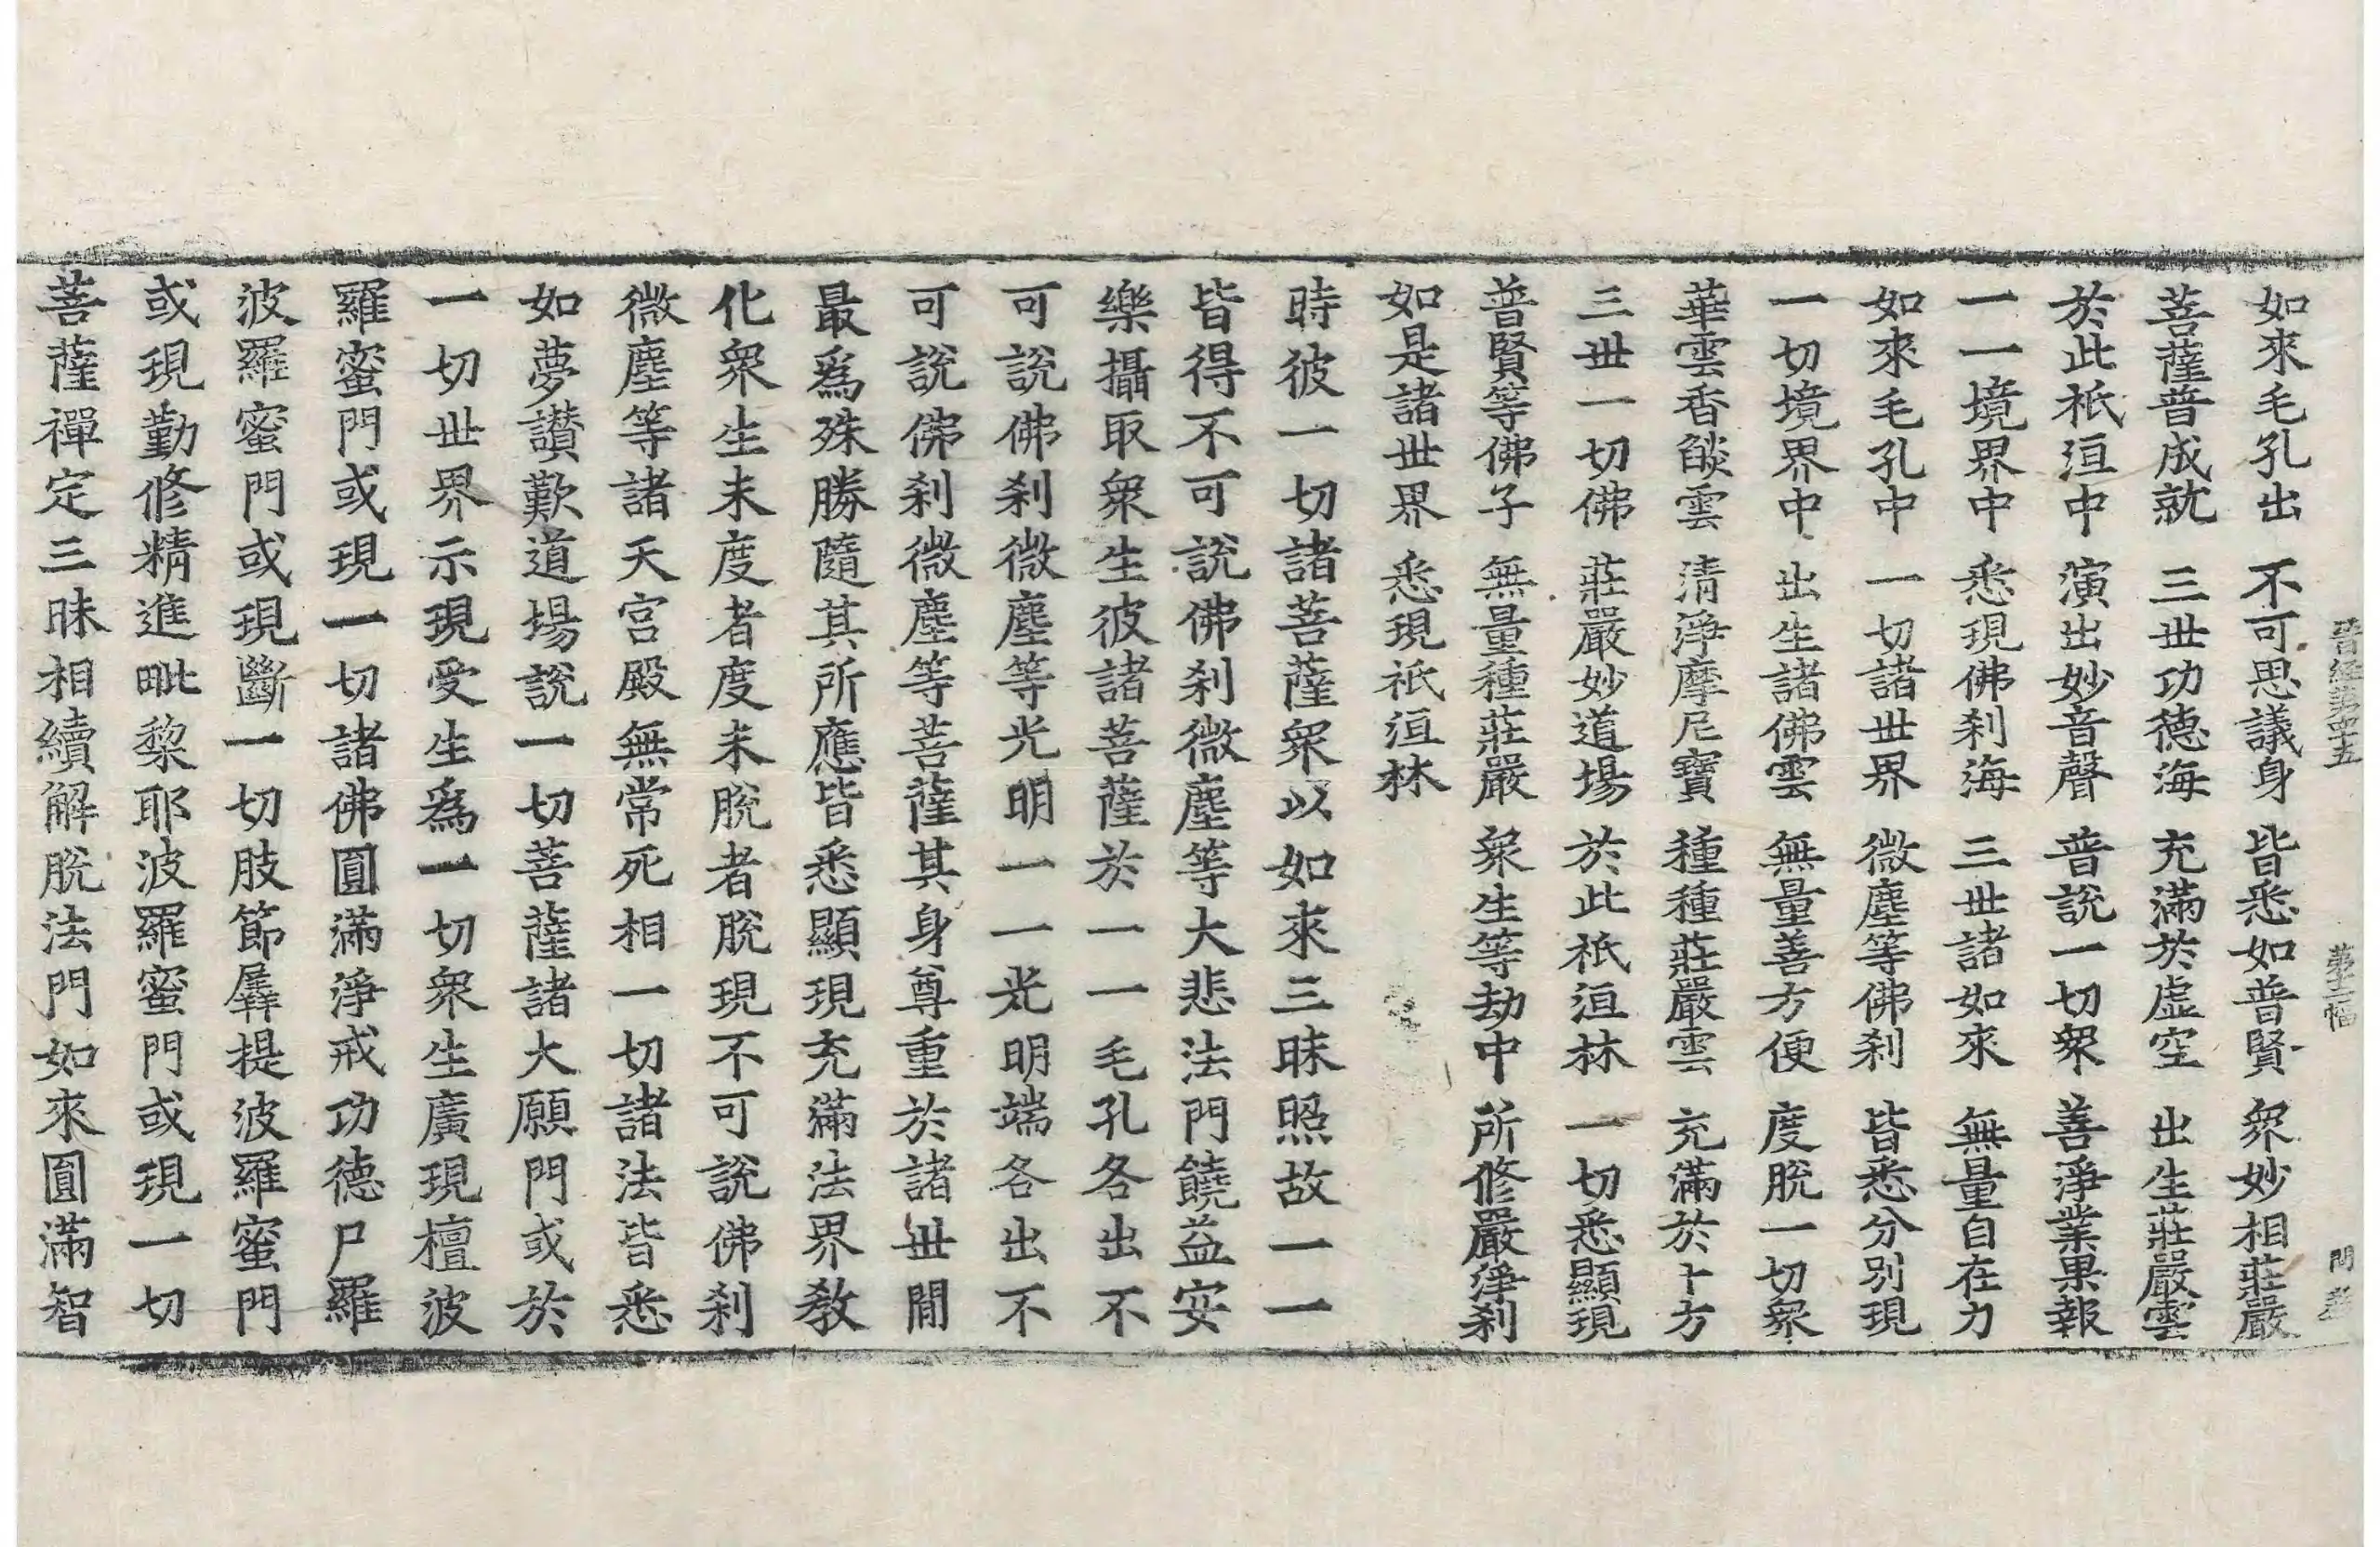 晉經第四十五 第十二幅 問
如來毛孔出 不可思議身 皆悉如普賢 衆妙相莊嚴
菩薩普成就 三世功德海 充滿於虛空 出生莊嚴雲
於此祇洹中 演出妙音聲 普說一切衆 善淨業果報
一一境界中 悉現佛刹海 三世諸如來 無量自在力
如來毛孔中 一切諸世界 微塵等佛刹 皆悉分別現
一切境界中 出生諸佛雲 無量善方便 度脫一切衆
華雲香𦦨雲 清淨摩尼寶 種種莊嚴雲 充滿於十方
三世一切佛 莊嚴妙道場 於此祇洹林 一切悉顯現
普賢等佛子 無量種莊嚴 衆生等劫中 所修嚴淨刹
如是諸世界 悉現祇洹林
時彼一切諸菩薩衆以如來三昧照故一一
皆得不可說佛刹微塵等大悲法門饒益安
樂攝取衆生彼諸菩薩於一一毛孔各出不
可說佛刹微塵等光明一一光明端各出不
可說佛刹微塵等菩薩其身尊重於諸世間
最爲殊勝隨其所應皆悉顯現充滿法界教
化衆生未度者度未脫者脫現不可說佛刹
微塵等諸天宮殿無常死相一切諸法皆悉
如夢讃歎道場說一切菩薩諸大願門或於
一切世界示現受生爲一切衆生廣現檀波
羅蜜門或現一切諸佛圓滿淨戒功德尸羅
波羅蜜門或現斷一切肢節羼提波羅蜜門
或現勤修精進毗棃耶波羅蜜門或現一切
菩薩禪定三昧相續解脫法門如來圓滿智